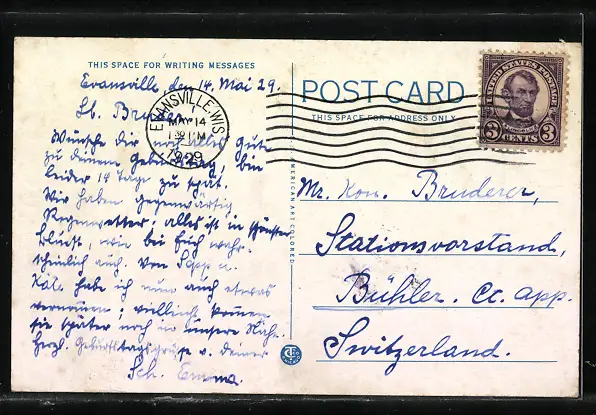 THIS SPACE FOR WRITING MESSAGES
Evansville, den 14. Mai 29.
Lb. Bruder
Wünsche dir noch alles Gute
zu deinem Geburtstag, bin
leider 14 Tage zu spät.
Wir haben gegenwärtig
Regenwetter, alles ist in schönster
Blust, wie bei Euch wahr-
scheinlich auch. Von Sepp u.
Kath. habe ich nun auch etwas
vernommen; vielleicht kommen
sie später noch in unsere Nähe.
Herzl. Geburtstagsgrüsse v. deiner
Sch. Emma.
EVANSVILLE, WIS.
MAY 14
1 PM
1929
AMERICAN ART COLORED
POST CARD
THIS SPACE FOR ADDRESS ONLY
UNITED STATES POSTAGE
LINCOLN
3 CENTS 3
Mr. Kon. Bruderer,
Stationsvorstand,
Bühler. Ct. App.
Switzerland.